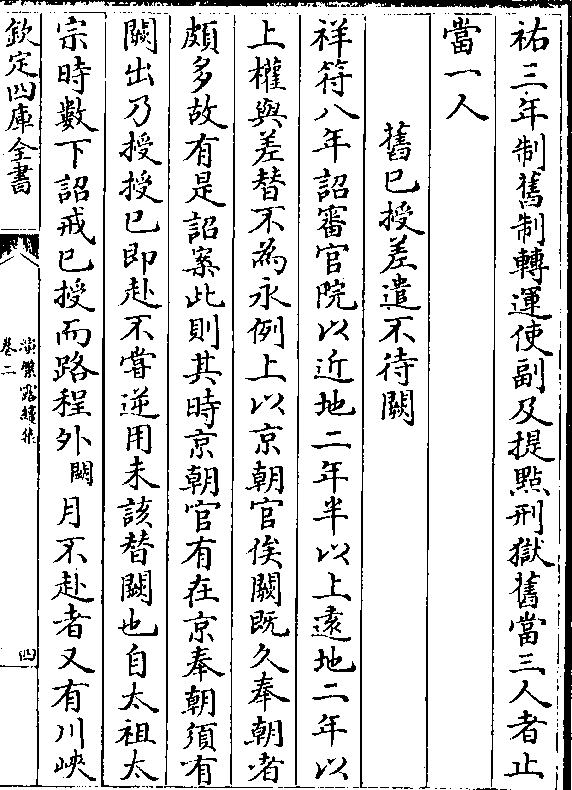 祐三年制舊制轉運使副及提點刑獄舊當三人者止
當一人
舊已授差遣不待闕
祥符八年詔審官院以近地二年半以上遠地二年以
上權與差替不為永例上以京朝官俟闕既久奉朝者
頗多故有是詔案此則其時京朝官有在京奉朝須有
闕出乃授授已即赴不嘗逆用未該替闕也自太祖太
宗時數下詔戒已授而路程外闕月不赴者又有川峽
欽定四庫全書
演繁露續集
卷二
四